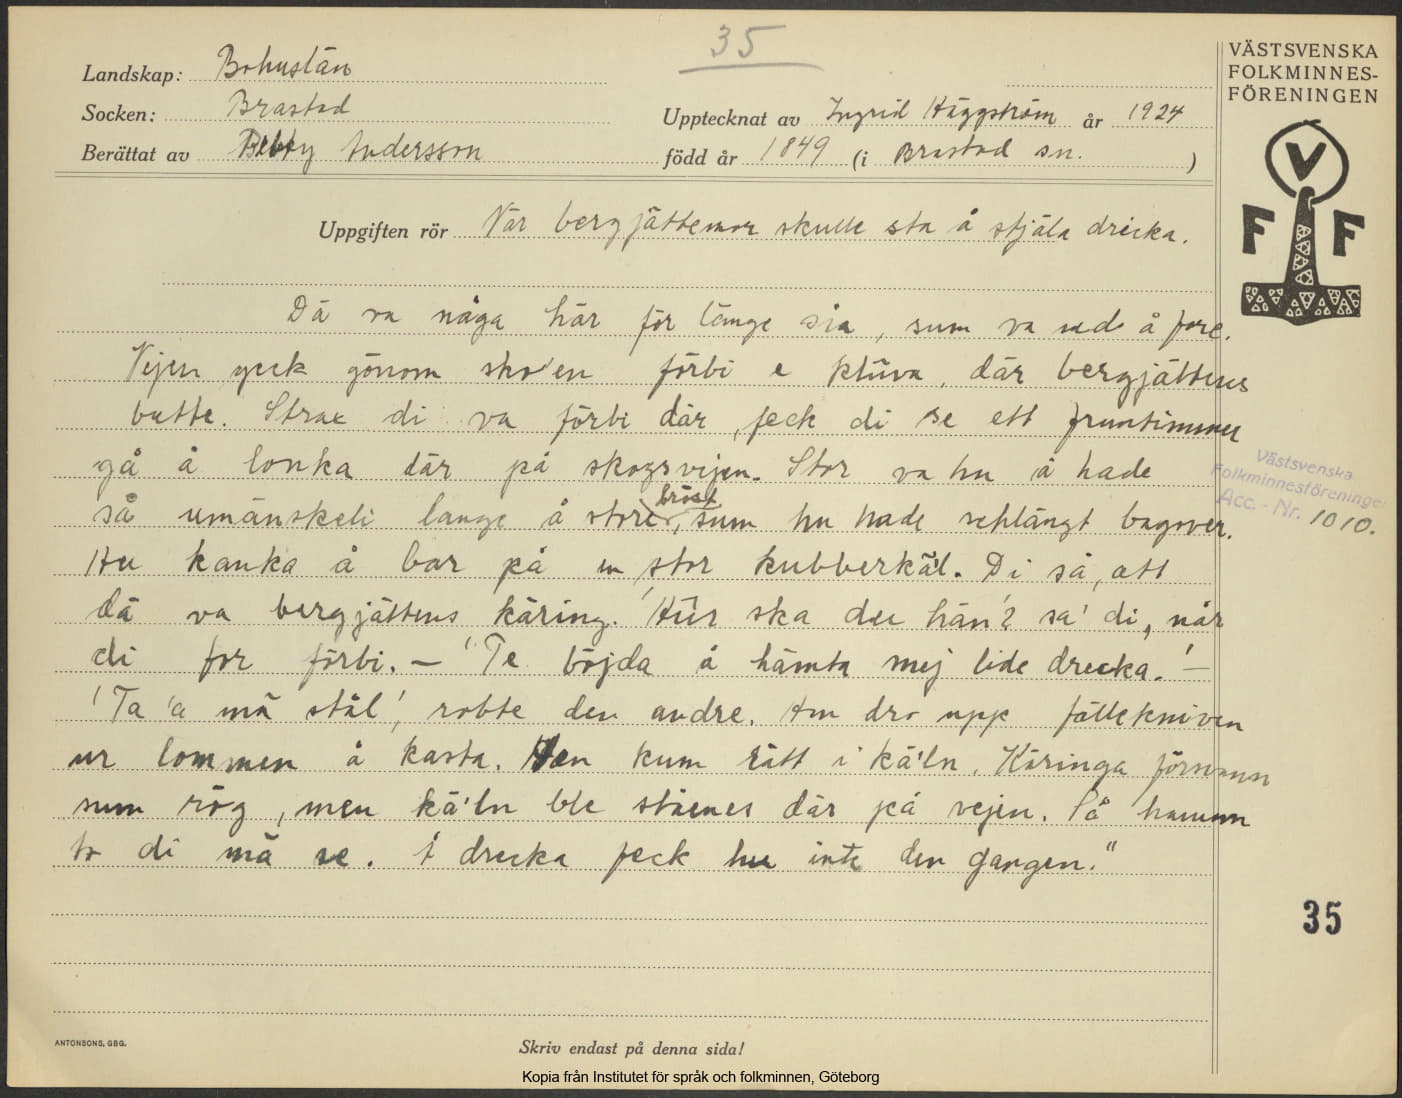 35
Landskap: Bohuslän
Socken: Brastad
Berättat av Betty Andersson
Upptecknat av Ingrid Häggström år 1924
född år 1849 (i Brastad sn. )
VÄSTSVENSKA
FOLKMINNES-
FÖRENINGEN
V
F F
Uppgiften rör När bergjättemor skulle sta å stjäla dricka.
Dä va någa här för länge sia, sum va ude å fore.
Vejen geck gönom sko'en förbi e klüva, där bergjättens
butte. Strax di va förbi där, feck di se ett fruntimmer
gå å lonka där på skogsvejen. Stor va hu å hade
så umänskeli lange å store bröst, sum hu hade schlängt bagover.
Hu kanka å bar på en stor kubberkä'l. Di så, att
dä va bergjättens käring. 'Hür ska du hän'? sa' di, når
di for förbi. — 'Te böjda å hämta mej lide drecka.' —
'Ta 'a mä stål', robte den andre. Han dro upp fällekniven
ur lommen å kasta. Den kum rätt i kä'ln. Käringa försvann
sum rög, men kä'ln ble stäenes där på vejen. Så hannun
to di mä se. I drecka feck hu inte den gangen."
Västsvenska
Folkminnesföreningen
Acc. - Nr. 1010.
35
ANTONSONS, GBG.
Skriv endast på denna sida!
Kopia från Institutet för språk och folkminnen, Göteborg